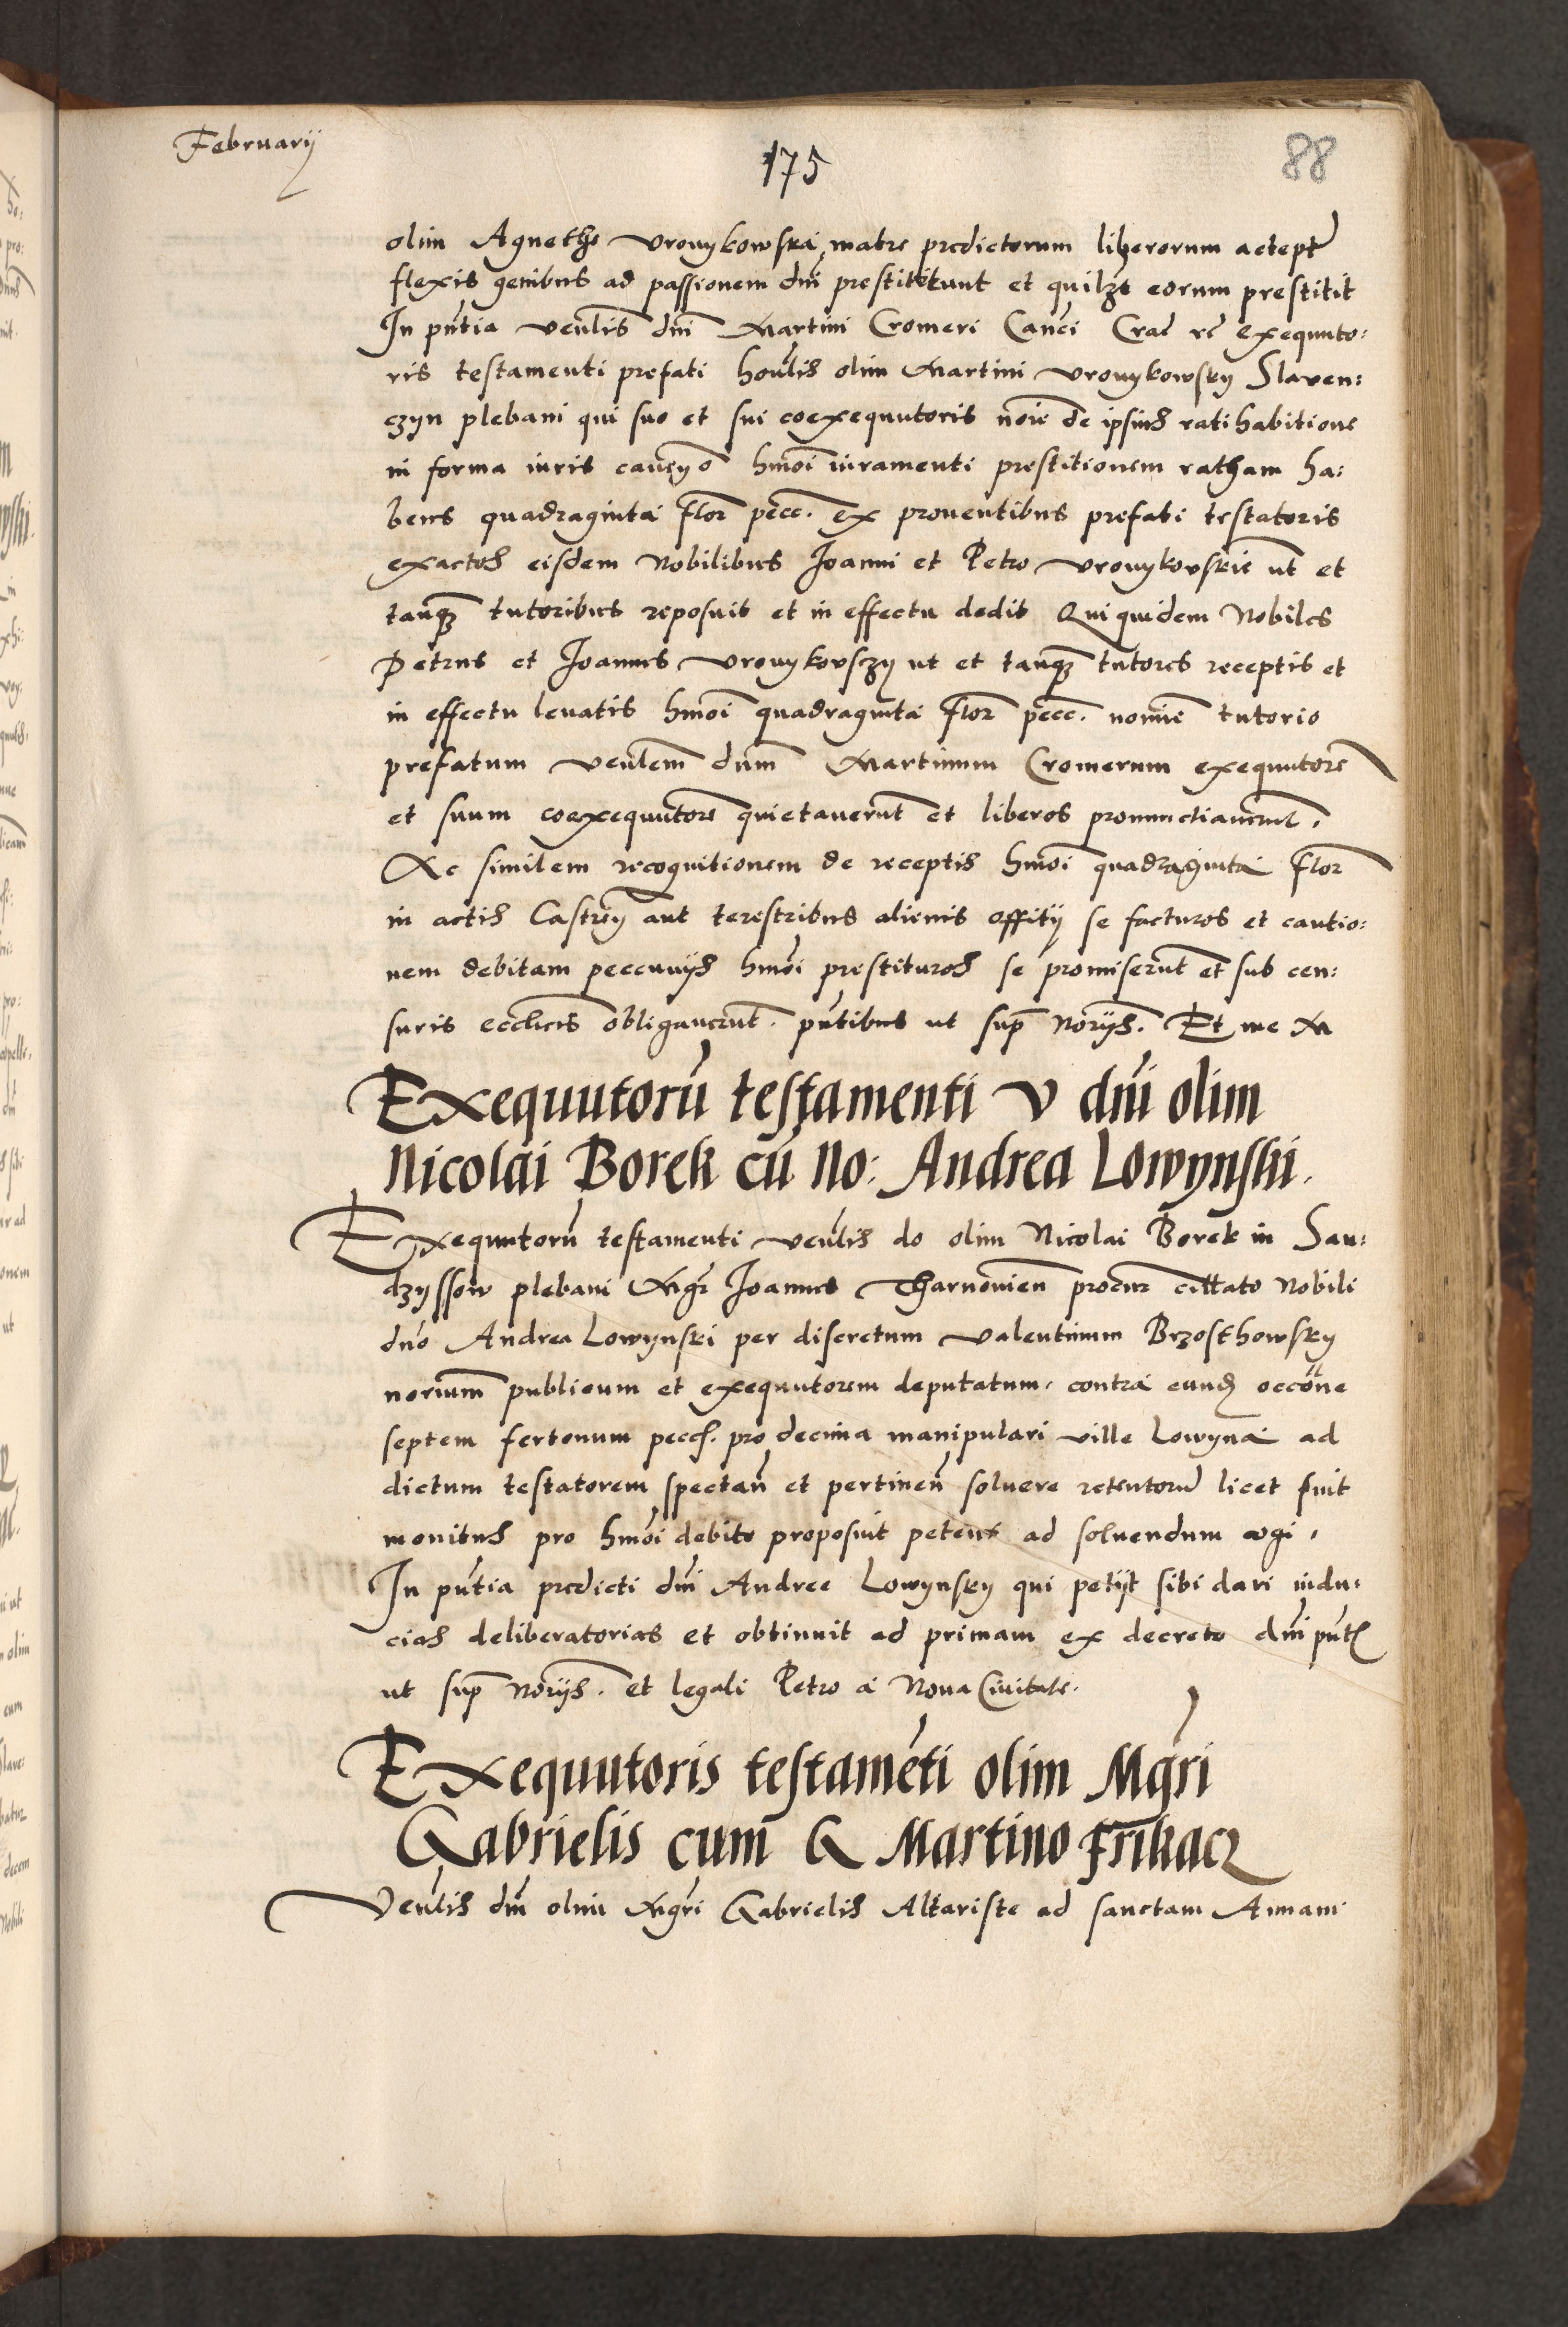 Februarij
175
88
olim Agnethe Vronykowska matre predictorum liberorum accept
flexis genibus ad passionem dni prestiterunt et quilzt eorum prestitit
In pntia venlis dni Martini Cromeri Canci Crac rc exequuto:
ris testamenti prefati honlis olim Martini Vronykowsky Slaven:
czyn plebani qui suo et sui coexequutoris noie de ipsius ratihabitione
in forma iuris caven hmoi iuramenti prestitionem ratham ha:
bens quadraginta flor pecc. ex proventibus prefati testatoris
exactos eisdem Nobilibus Joanni et Petro Vronykovskie ut et
tanq tutoribus reposuit et in effectu dedit Qui quidem Nobiles
Petrus et Joannes Vronykovsczy ut et tanq tutores receptis et
in effectu levatis hmoi quadraginta flor pecc. nomie tutorio
prefatum venlem dum Martinum Cromerum exequutore
et suum coexequutore quietaverut et liberos pronunctiaverut.
Ac similem recognitionem de receptis hmoi quadraginta flor
in actis Castren aut terestribus alienis offitij se facturos et cautio:
nem debitam peccunijs hmoi prestituros se promiserut et sub cen:
suris ecclicis obligaverut. pntibus ut sup Norijs. Et me M
Exequutoru testamenti V dni olim
Nicolai Borek cu No: Andrea Lowynski.
Exequutoru testamenti venlis do olim Nicolai Borek in San:
dzyssow plebani Mgr Joannes Tharnovien procur cittato Nobili
dno Andrea Lowynski per discretum Valentinum Brzosthowsky
norium publicum et exequutorem deputatum. contra eund occone
septem fertonum pecc. pro decima manipulari ville Lowyna ad
dictum testatorem spectan et pertinen solvere retentorum licet fuit
monitus pro hmoi debito proposuit petens ad solvendum cogi.
In pntia predicti dni Andree Lowynsky qui petijt sibi dari indu:
cias deliberatorias et obtinuit ad primam ex decreto dni pnt
ut sup Norijs. et legali Petro a Nova Civitate.
Exequutoris testameti olim Mgri
Gabrielis cum G Martino Frikacz
Venlis dni olim Mgri Gabrielis Altariste ad sanctam Annam